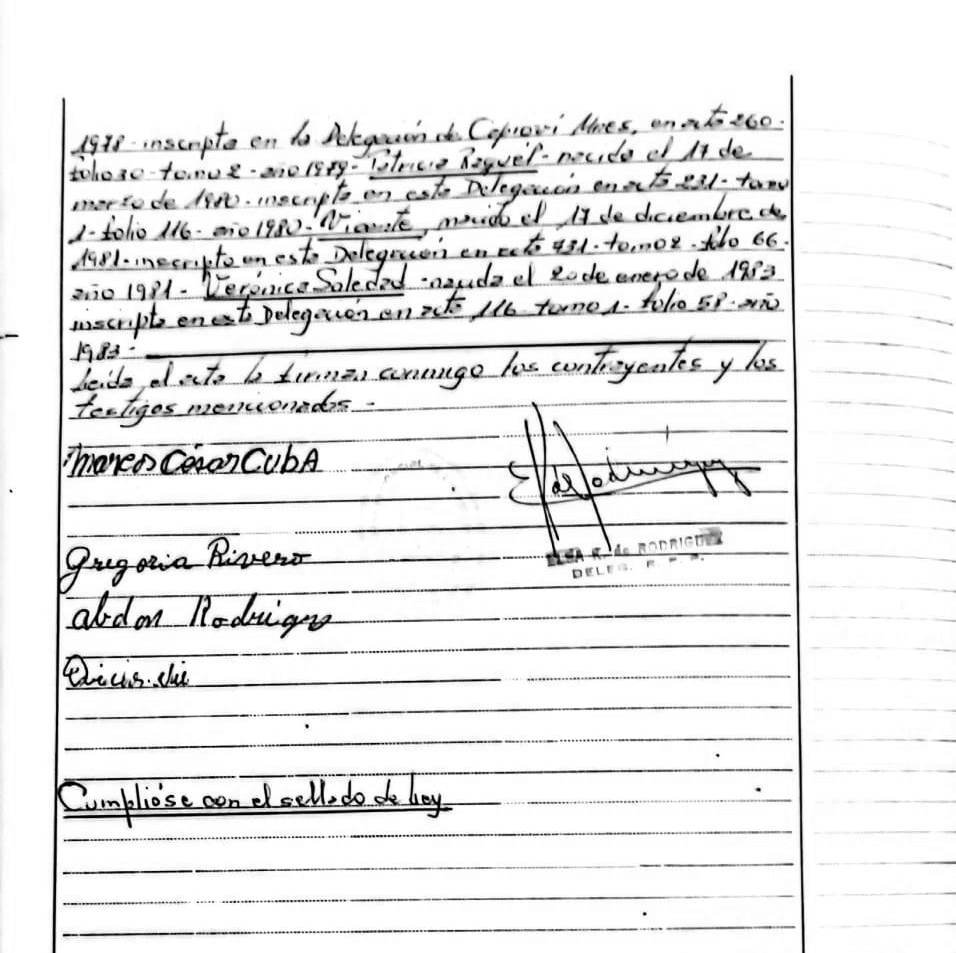 1978 - inscripta en la Delegación de Capioví Mnes, en acta 260 -
folio 30 - tomo 2 - año 1979 - Patricia Raquel - nacida el 17 de
marzo de 1980 - inscripta en esta Delegación en acta 231 - tomo
1 - folio 116 - año 1980 - Vicente, nacido el 17 de diciembre de
1981 - inscripto en esta Delegación en acta 931 - tomo 2 - folio 66 -
año 1981 - Verónica Soledad - nacida el 20 de enero de 1983
inscripta en esta Delegación en acta 116 - tomo 1 - folio 58 - año
1983 -
Leida el acta la firman conmigo los contrayentes y los
testigos mencionados -
Marcos César CUBA
ELSA R. de RODRIGUEZ
DELEG. R. P. P.
Gregoria Rivero
abdon Rodriguez
Cumplióse con el sellado de ley